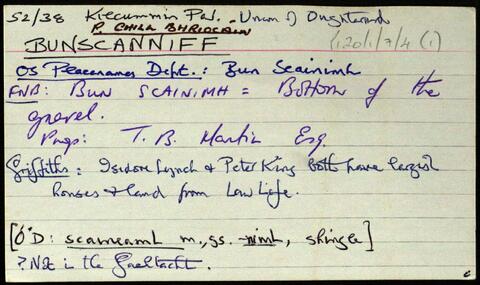 52/38 Kilcummin Par. - Union of Oughterard
P. CHILL BHRIOCÁIN
120/1/7/4 (1)
BUNSCANNIFF
OS Placenames Dept.: Bun Scainimh
FNB: BUN SCAINIMH = Bottom of the
gravel.
Prop: T. B. Martin Esq.
Griffiths: Isidore Lynch & Peter King both have largest
houses & land from Law Life.
[Ó'D: scaineamh m., gs. -nimh, shingle]
? Not in the Gaeltacht.